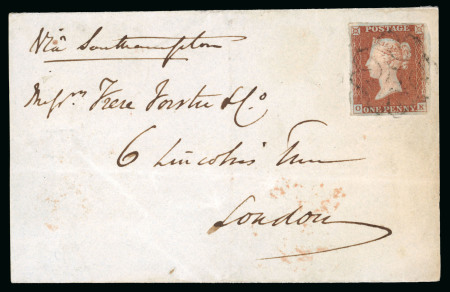 Via Southampton
POSTAGE
Messrs Frere Forster & Co
ONE PENNY
6 Lincoln's Inn
London